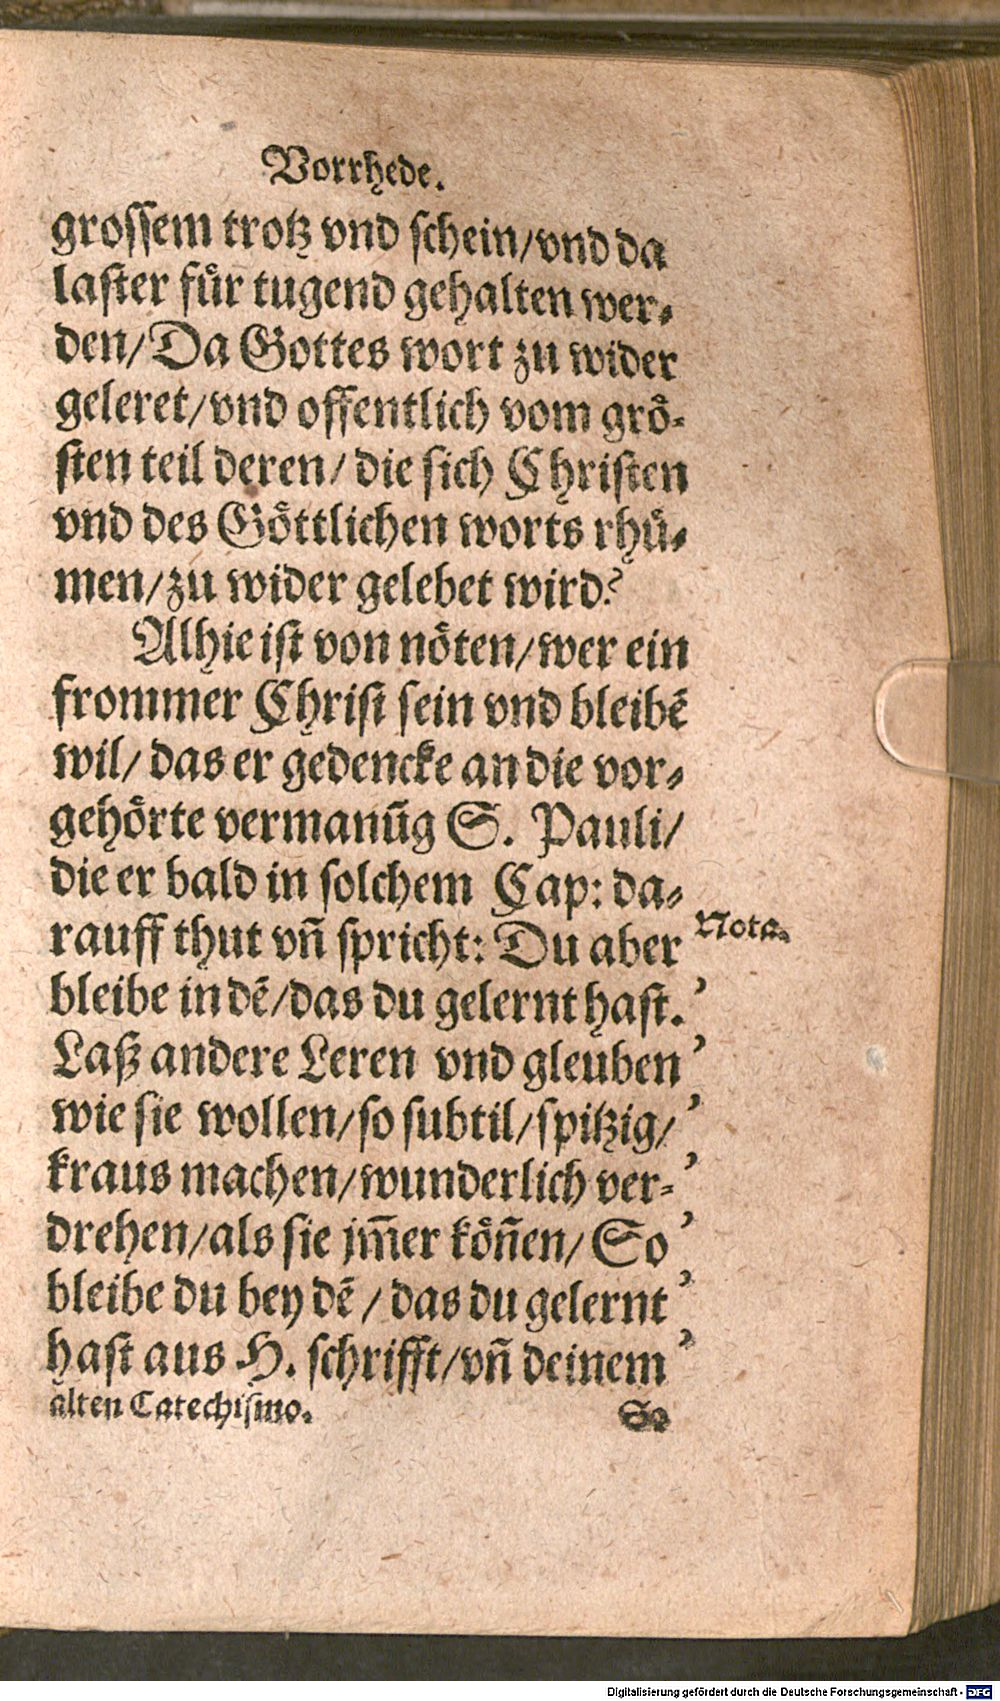 Vorrhede.
grossem trotz vnd schein/vnd da
laster fuͤr tugend gehalten wer⸗
den/Da Gottes wort zu wider
geleret/vnd offentlich vom groͤ⸗
sten teil deren/die sich Christen
vnd des Goͤttlichen worts rhuͤ⸗
men/zu wider gelebet wird?
Alhie ist von noͤten/wer ein
frommer Christ sein vnd bleibē
wil/ das er gedencke an die vor⸗
gehoͤrte vermanūg S. Pauli/
die er bald in solchem Cap: da⸗
rauff thut vn̄ spricht: Du aber
Nota.
bleibe in dē/das du gelernt hast. ’
Laß andere Leren vnd gleuben ’
wie sie wollen/so subtil/spitzig/ ’
kraus machen/wunderlich ver⸗ ’
drehen/als sie jm̄er koͤn̄en/ So ’
bleibe du bey dē / das du gelernt ’
hast aus H. schrifft/vn̄ deinem ’
alten Catechismo.
So
Digitalisierung gefördert durch die Deutsche Forschungsgemeinschaft - DFG